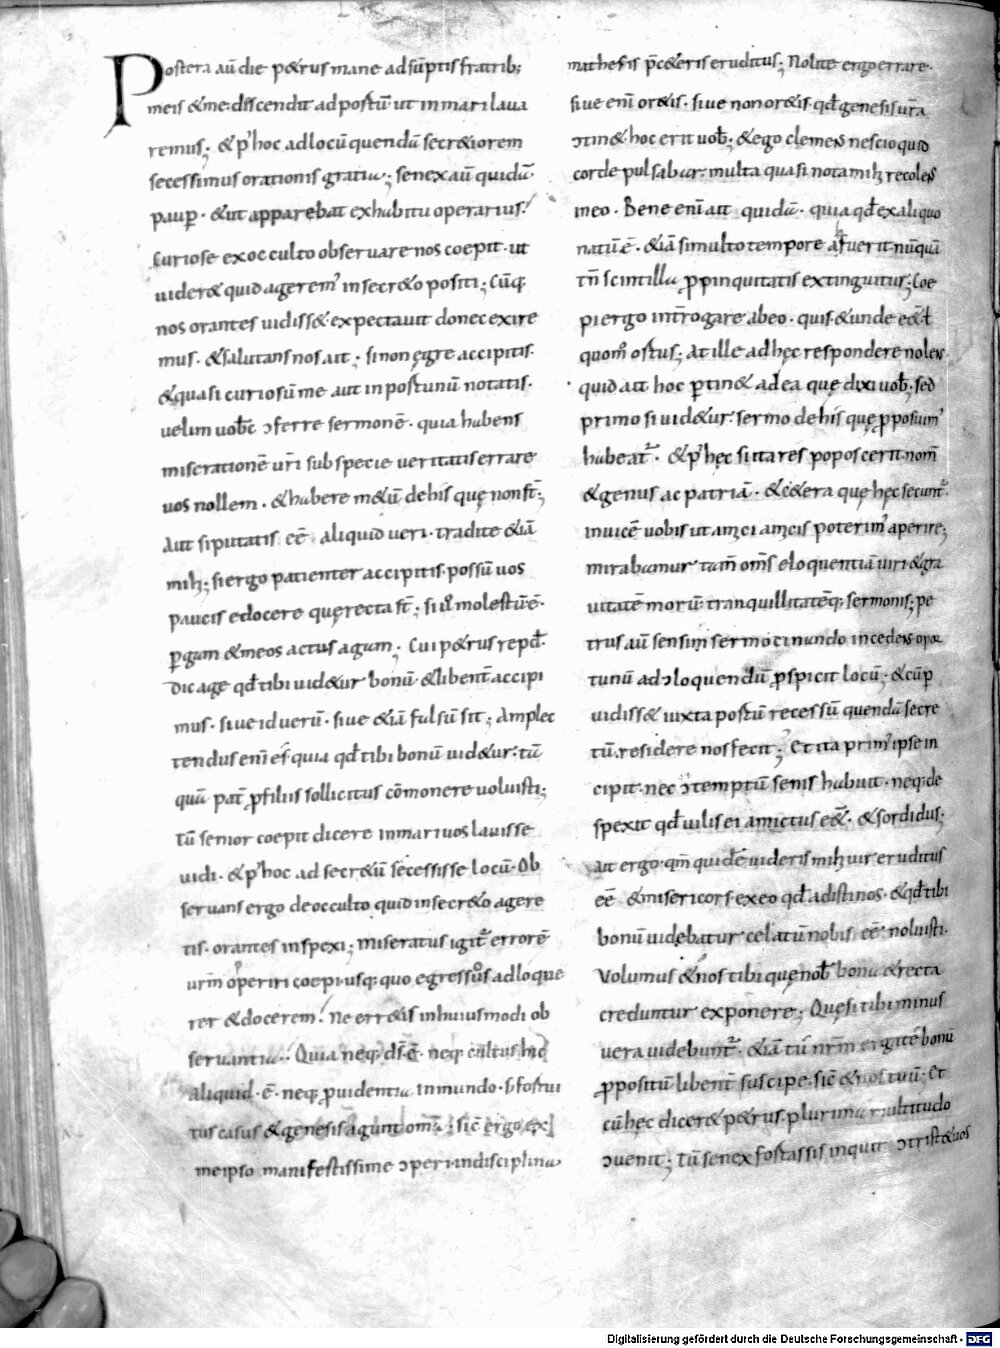 Postera aū die p&rus mane adsūptis fratrib;
meis & me. descendit ad portū ut in mari laua
remus; & p' hoc ad locū quendā secr&iorem
secessimus orationis gratia; senex aū quidā
paup̄. & ut apparebat ex habitu operarius.
Curiose ex occulto observare nos coepit. ut
uider& quid agerem' in secr&o positi; Cūq;
nos orantes uidiss& expectauit donec exire
mus. & salutans nos ait; si non ęgre accipitis.
& quasi curiosū me aut inportunū notatis.
uelim uob̄c ɔferre sermonē. quia habens
miserationē ur̄i sub specie ueritatis errare
uos nollem. & habere m&ū de his quę non st̄;
Aut si putatis eē aliquid ueri. tradite &iā
mih; si ergo patienter accipitis. possū uos
paucis edocere quę recta st̄; si u° molestū ē.
p̱gam & meos actus agam; Cui p&rus repd̄.
Dic age qđ tibi uid&ur bonū. & libent̄ accipi
mus. siue id uerū. siue &iā falsū sit; Amplec
tendus enī es. quia qđ tibi bonū uid&ur. tū
quā pat̄ p̱ filiis sollicitus cōmonere uoluisti;
Tū senior coepit dicere in mari uos lauisse
uidi. & p' hoc ad secr&ū secessisse locū. Ob
seruans ergo de occulto quid in secr&o agere
tis. orantes inspexi; miseratus igit' errorē
ur̄m operiri coepi usq; quo egressus adloque
rer & docerem. Ne err&is in huiusmodi ob
seruantia. Quia neq; d̄s ē. neq; cultus hic
aliquid. ē. neq; p̱uidentia in mundo. s; fortui
tus casus & genesis agunt om̄a. sic̄ ergo ex
me ipso manifestissime ɔperi. in disciplina
mathesis p̄c&eris eruditus; Nolite ergo errare.
siue enī or&is. siue non or&is. qđ genesis ur̄a
ɔtin& hoc erit uob̄; & ego clemens nescio quid
corde pulsabar. multa quasi nota mih recolens
in eo. Bene enī ait quidā. quia qđ ex aliquo
natū ē. &iā si multo tempore afuerit. nūquā
tn̄ scintilla p̱pinquitatis extinguitur; Coe
pi ergo int̄rogare ab eo. quis & unde e& t
quom° ortus; At ille ad hęc respondere nolens
quid ait hoc p̱tin& ad ea quę dixi uob̄; sed
primo si uid&ur. sermo de his quę p̱posuim'
habeat'. & p' hęc si ita res poposcerit nom̄
& genus ac patriā. & c&era quę hęc secunt'
inuicē uobis ut amici amicis poterim' aperire;
mirabamur tam̄ om̄s eloquentiā uiri & gra
uitatē morū. tranquillitatēq; sermonis; pe
trus aū sensim sermocinando incedens opor
tunū ad ɔloquendū p̱spicit locū; & cūp̱
uidiss& iuxta portū recessū quendā secre
tū. residere nos fecit; Et ita prim' ipse in
cipit. nec ɔtemptū senis habuit. neq; de
spexit qđ uilis ei amictus e&. & sordidus;
ait ergo. qm̄ quidē uideris mih uir eruditus
eē & misericors. ex eo qđ adisti nos. & qđ tibi
bonū uidebatur celatū nobis eē noluisti.
Volumus & nos tibi quę nob̄ bona & recta
creduntur exponere; Quę si tibi minus
uera uidebunt'. &iā tū nr̄m erga te bonū
p̱positū libent̄ suscipe. sic̄ & nos tuū; Et
cū hęc dicer& p&rus. plurima multitudo
ɔuenit; Tū senex fortassis inquit ɔtrist& uos
Digitalisierung gefördert durch die Deutsche Forschungsgemeinschaft - DFG